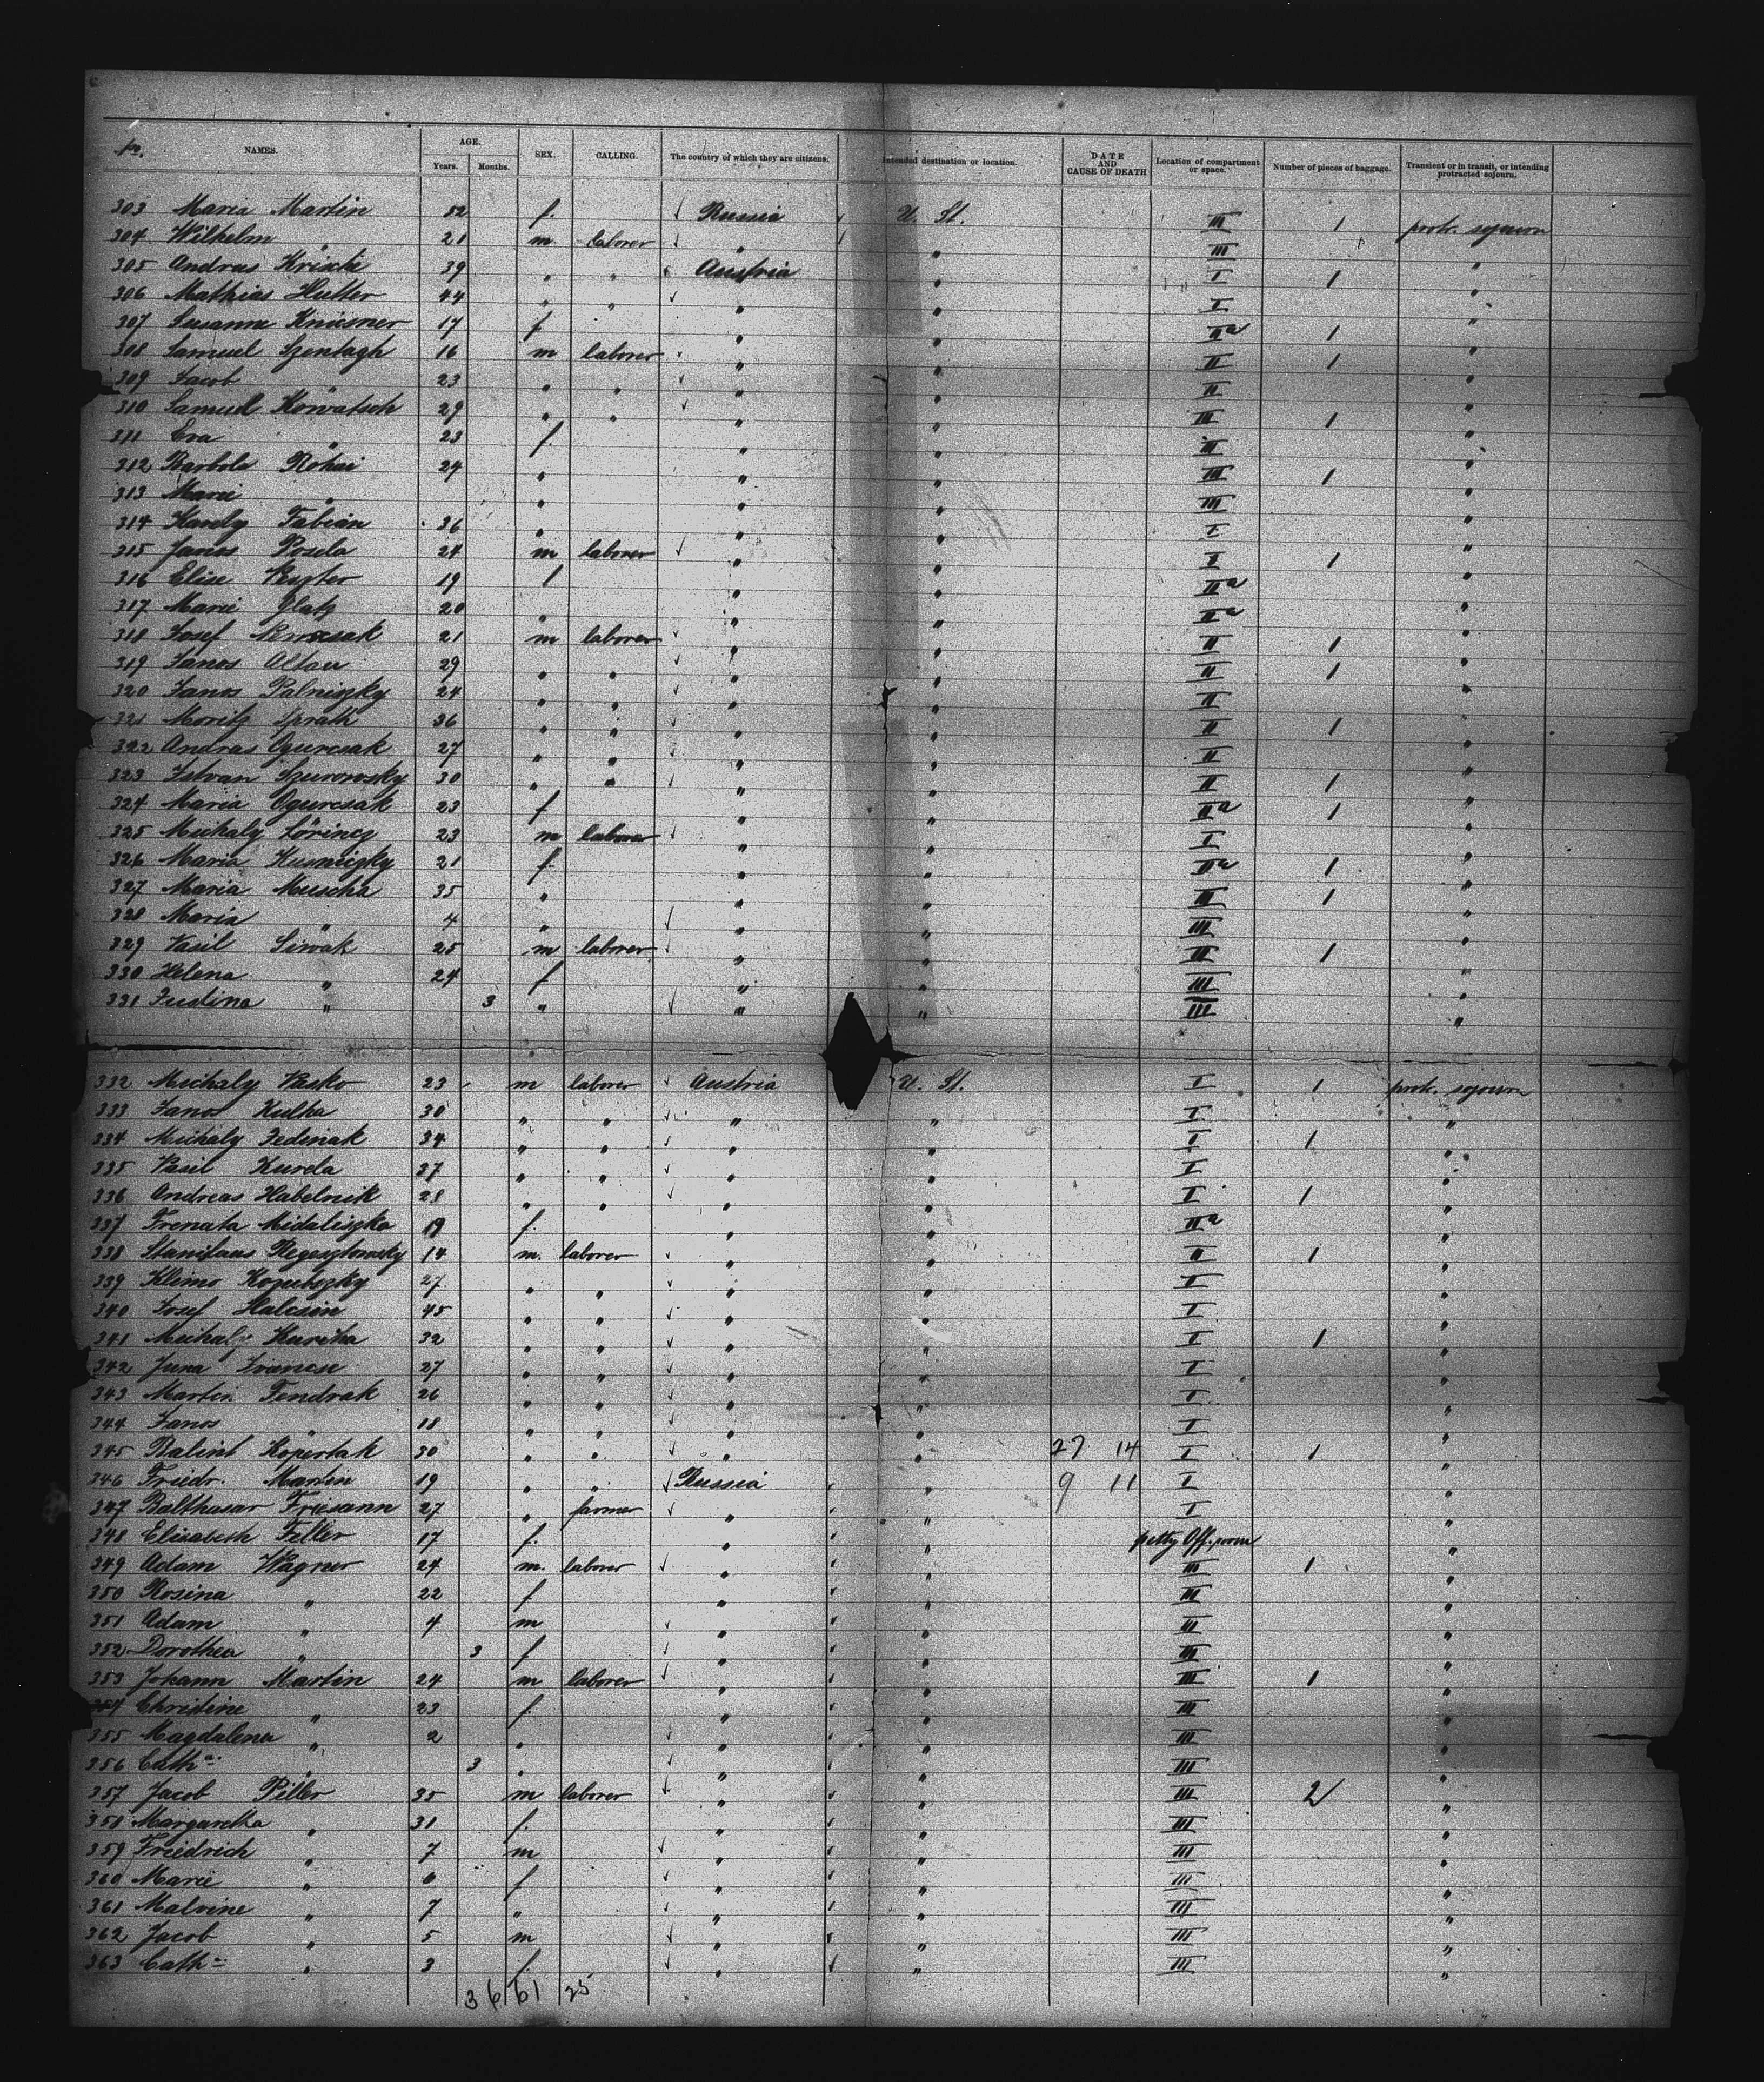 No. NAMES. AGE. Years. Months. SEX. CALLING. The country of which they are citizens. Intended destination or location. DATE AND CAUSE OF DEATH Location of compartment or space. Number of pieces of baggage. Transient or in transit, or intending protracted sojourn.
303 Maria Martin 52 f. Russia U. St. III 1 protr. sojourn
304 Wilhelm " 21 m. laborer " " III "
305 Andras 39 " " Austria " I 1 "
306 Mathias Hutter 44 " " " " I "
307 Susanna Kniesner 17 f " " IIa 1 "
308 Samuel Szontagh 16 m laborer " " II 1 "
309 Jacob " 23 " " " " II "
310 Samuel Kowatsch 29 " " " " III 1 "
311 Eva " 23 f " " III "
312 Barbola Rohai 24 " " " III 1 "
313 Marie " " " " III "
314 Karoly Fabian 36 " " " I "
315 Janos Posela 24 m laborer " " I 1 "
316 Elise 19 f " " IIa "
317 Marie Glatz 20 " " " IIa "
318 Josef 21 m laborer " " II 1 "
319 Janos Altau 29 " " " " II 1 "
320 Janos Palniszky 24 " " " " II "
321 Moritz Sprath 36 " " " " II 1 "
322 Andras Ogurcsak 27 " " " " II "
323 Istvan Szurowsky 30 " " " " II 1 "
324 Maria Ogurcsak 23 f " " IIa 1 "
325 Michaly Lörincz 23 m laborer " " I "
326 Maria Kusniczky 21 f. " " IIa 1 "
327 Maria Muscha 35 " " " III 1 "
328 Maria " 4 " " " III "
329 Vasil Siwak 25 m laborer " " III 1 "
330 Helena " 24 f " " III "
331 Justina " 3 " " " III "
332 Michaly Pasko 23 m laborer Austria U. St. I 1 protr. sojourn
333 Janos Kulha 30 " " " " I "
334 Michaly Fedinak 34 " " " " I 1 "
335 Vasil Kurela 37 " " " " I "
336 Andreas Habelnik 28 " " " " I 1 "
337 Frenata Midaliszka 19 f. " " IIa "
338 Stanislaus 14 m. laborer " " II 1 "
339 Klimo Kozubszky 27 " " " " I "
340 Josef Halcsin 45 " " " " I "
341 Michaly Kurcha 32 " " " " I 1 "
342 Juna 27 " " " " I "
343 Martin Tendrak 26 " " " " I "
344 Janos " 18 " " " " I "
345 Balint Kopertak 30 " " " " 27 14 I 1 "
346 Friedr. Martin 19 " " Russia " 9 11 I "
347 Balthasar Friesann 27 " farmer " " I "
348 Elisabeth Feller 17 f. " " petty Off. room "
349 Adam Wagner 24 m. laborer " " III 1 "
350 Rosina " 22 f " " III "
351 Adam " 4 m " " III "
352 Dorothea " 3 f " " III "
353 Johann Martin 24 m laborer " " III 1 "
354 Christine " 23 f. " " III "
355 Magdalena " 2 " " " III "
356 Cath. " 3 " " " III "
357 Jacob Piller 35 m laborer " " III 2 "
358 Margaretha " 31 f. " " III "
359 Friedrich " 7 m " " III "
360 Marie " f " " III "
361 Malvine " 7 " " " III "
362 Jacob " 5 m " " III "
363 Cath. " 3 f. " " III "
36 61 25